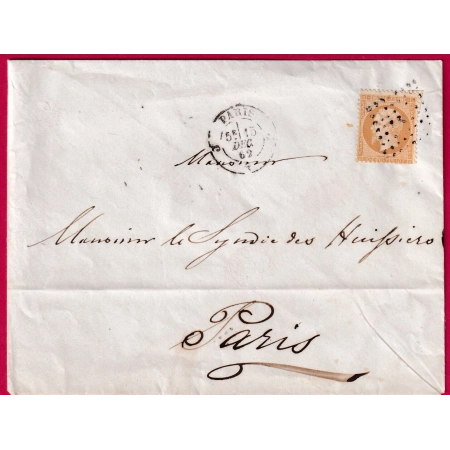 PARIS
5E 15
DEC.
62
Monsieur
Monsieur le Syndic des Huissiers
Paris